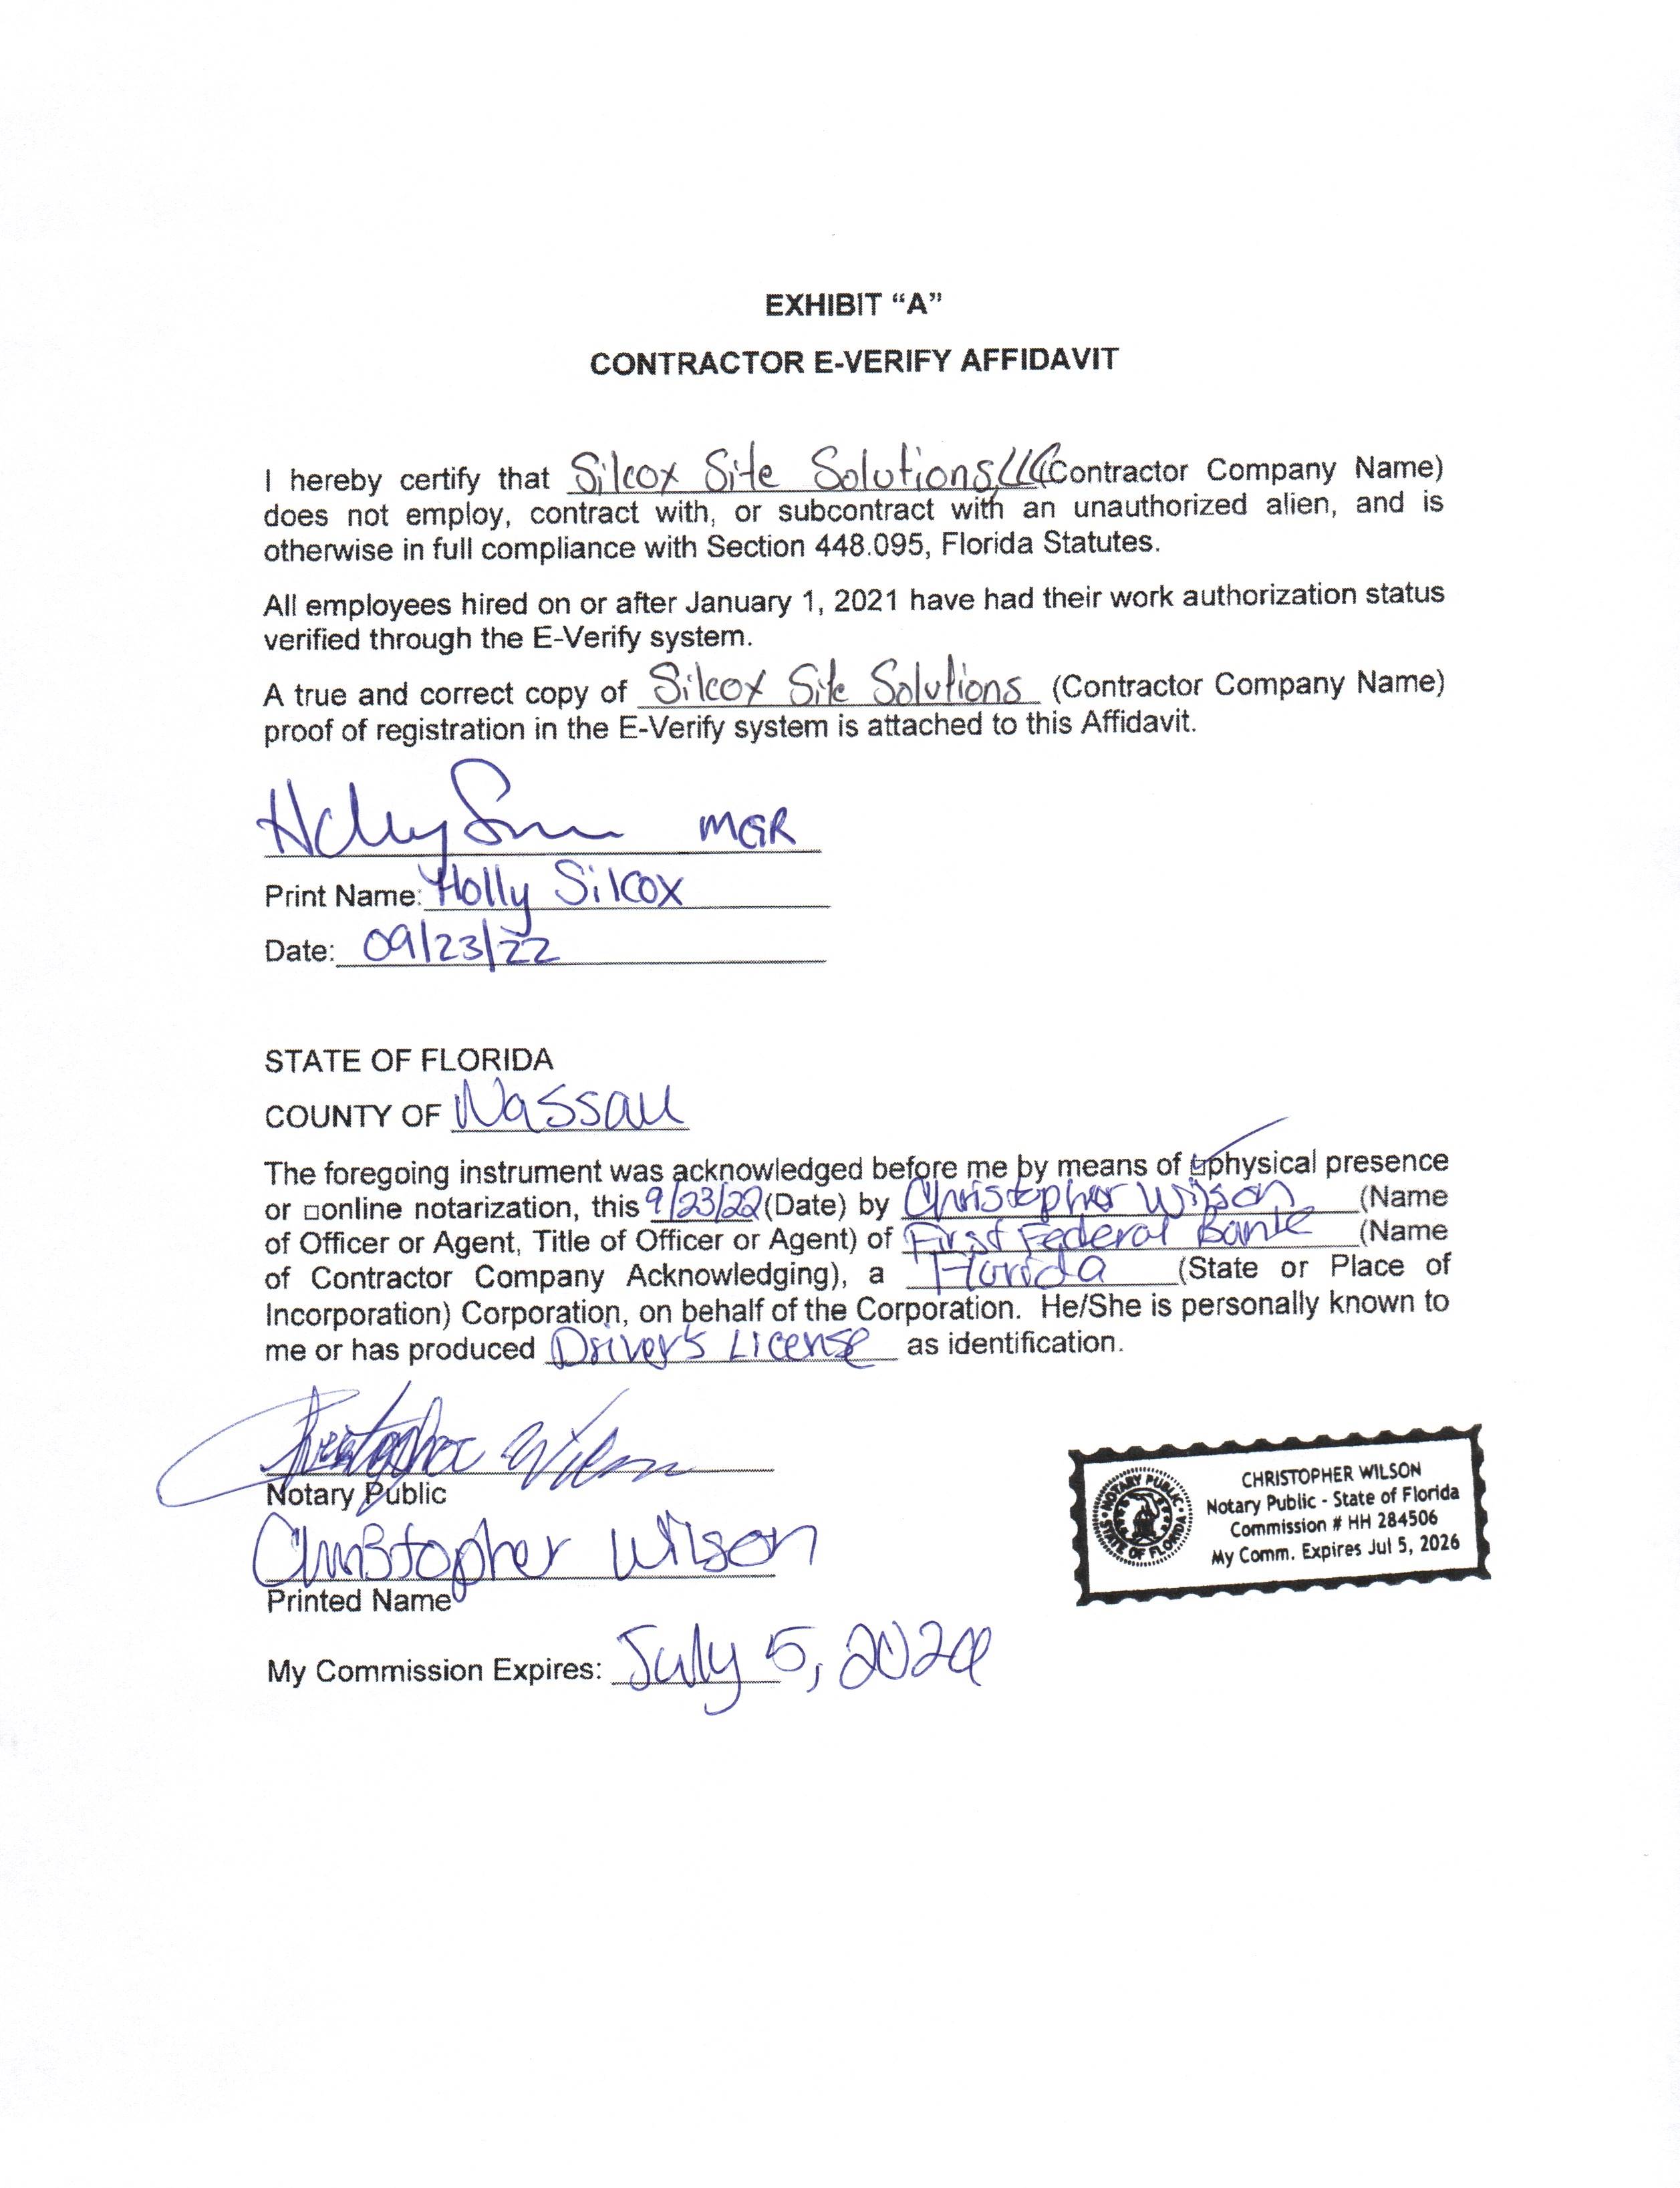 EXHIBIT “A”
CONTRACTOR E-VERIFY AFFIDAVIT
I hereby certify that Silcox Site Solutions, LLC (Contractor Company Name)
does not employ, contract with, or subcontract with an unauthorized alien, and is
otherwise in full compliance with Section 448.095, Florida Statutes.
All employees hired on or after January 1, 2021 have had their work authorization status
verified through the E-Verify system.
A true and correct copy of Silcox Site Solutions (Contractor Company Name)
proof of registration in the E-Verify system is attached to this Affidavit.
Holly S MGR
Print Name: Holly Silcox
Date: 09/23/22
STATE OF FLORIDA
COUNTY OF Nassau
The foregoing instrument was acknowledged before me by means of ☑physical presence
or □online notarization, this 9/23/22 (Date) by Christopher Wilson (Name
of Officer or Agent, Title of Officer or Agent) of First Federal Bank (Name
of Contractor Company Acknowledging), a Florida (State or Place of
Incorporation) Corporation, on behalf of the Corporation. He/She is personally known to
me or has produced Driver's License as identification.
Christopher Wilson
Notary Public
Christopher Wilson
Printed Name
My Commission Expires: July 5, 2026
NOTARY PUBLIC
STATE OF FLORIDA
CHRISTOPHER WILSON
Notary Public - State of Florida
Commission # HH 284506
My Comm. Expires Jul 5, 2026